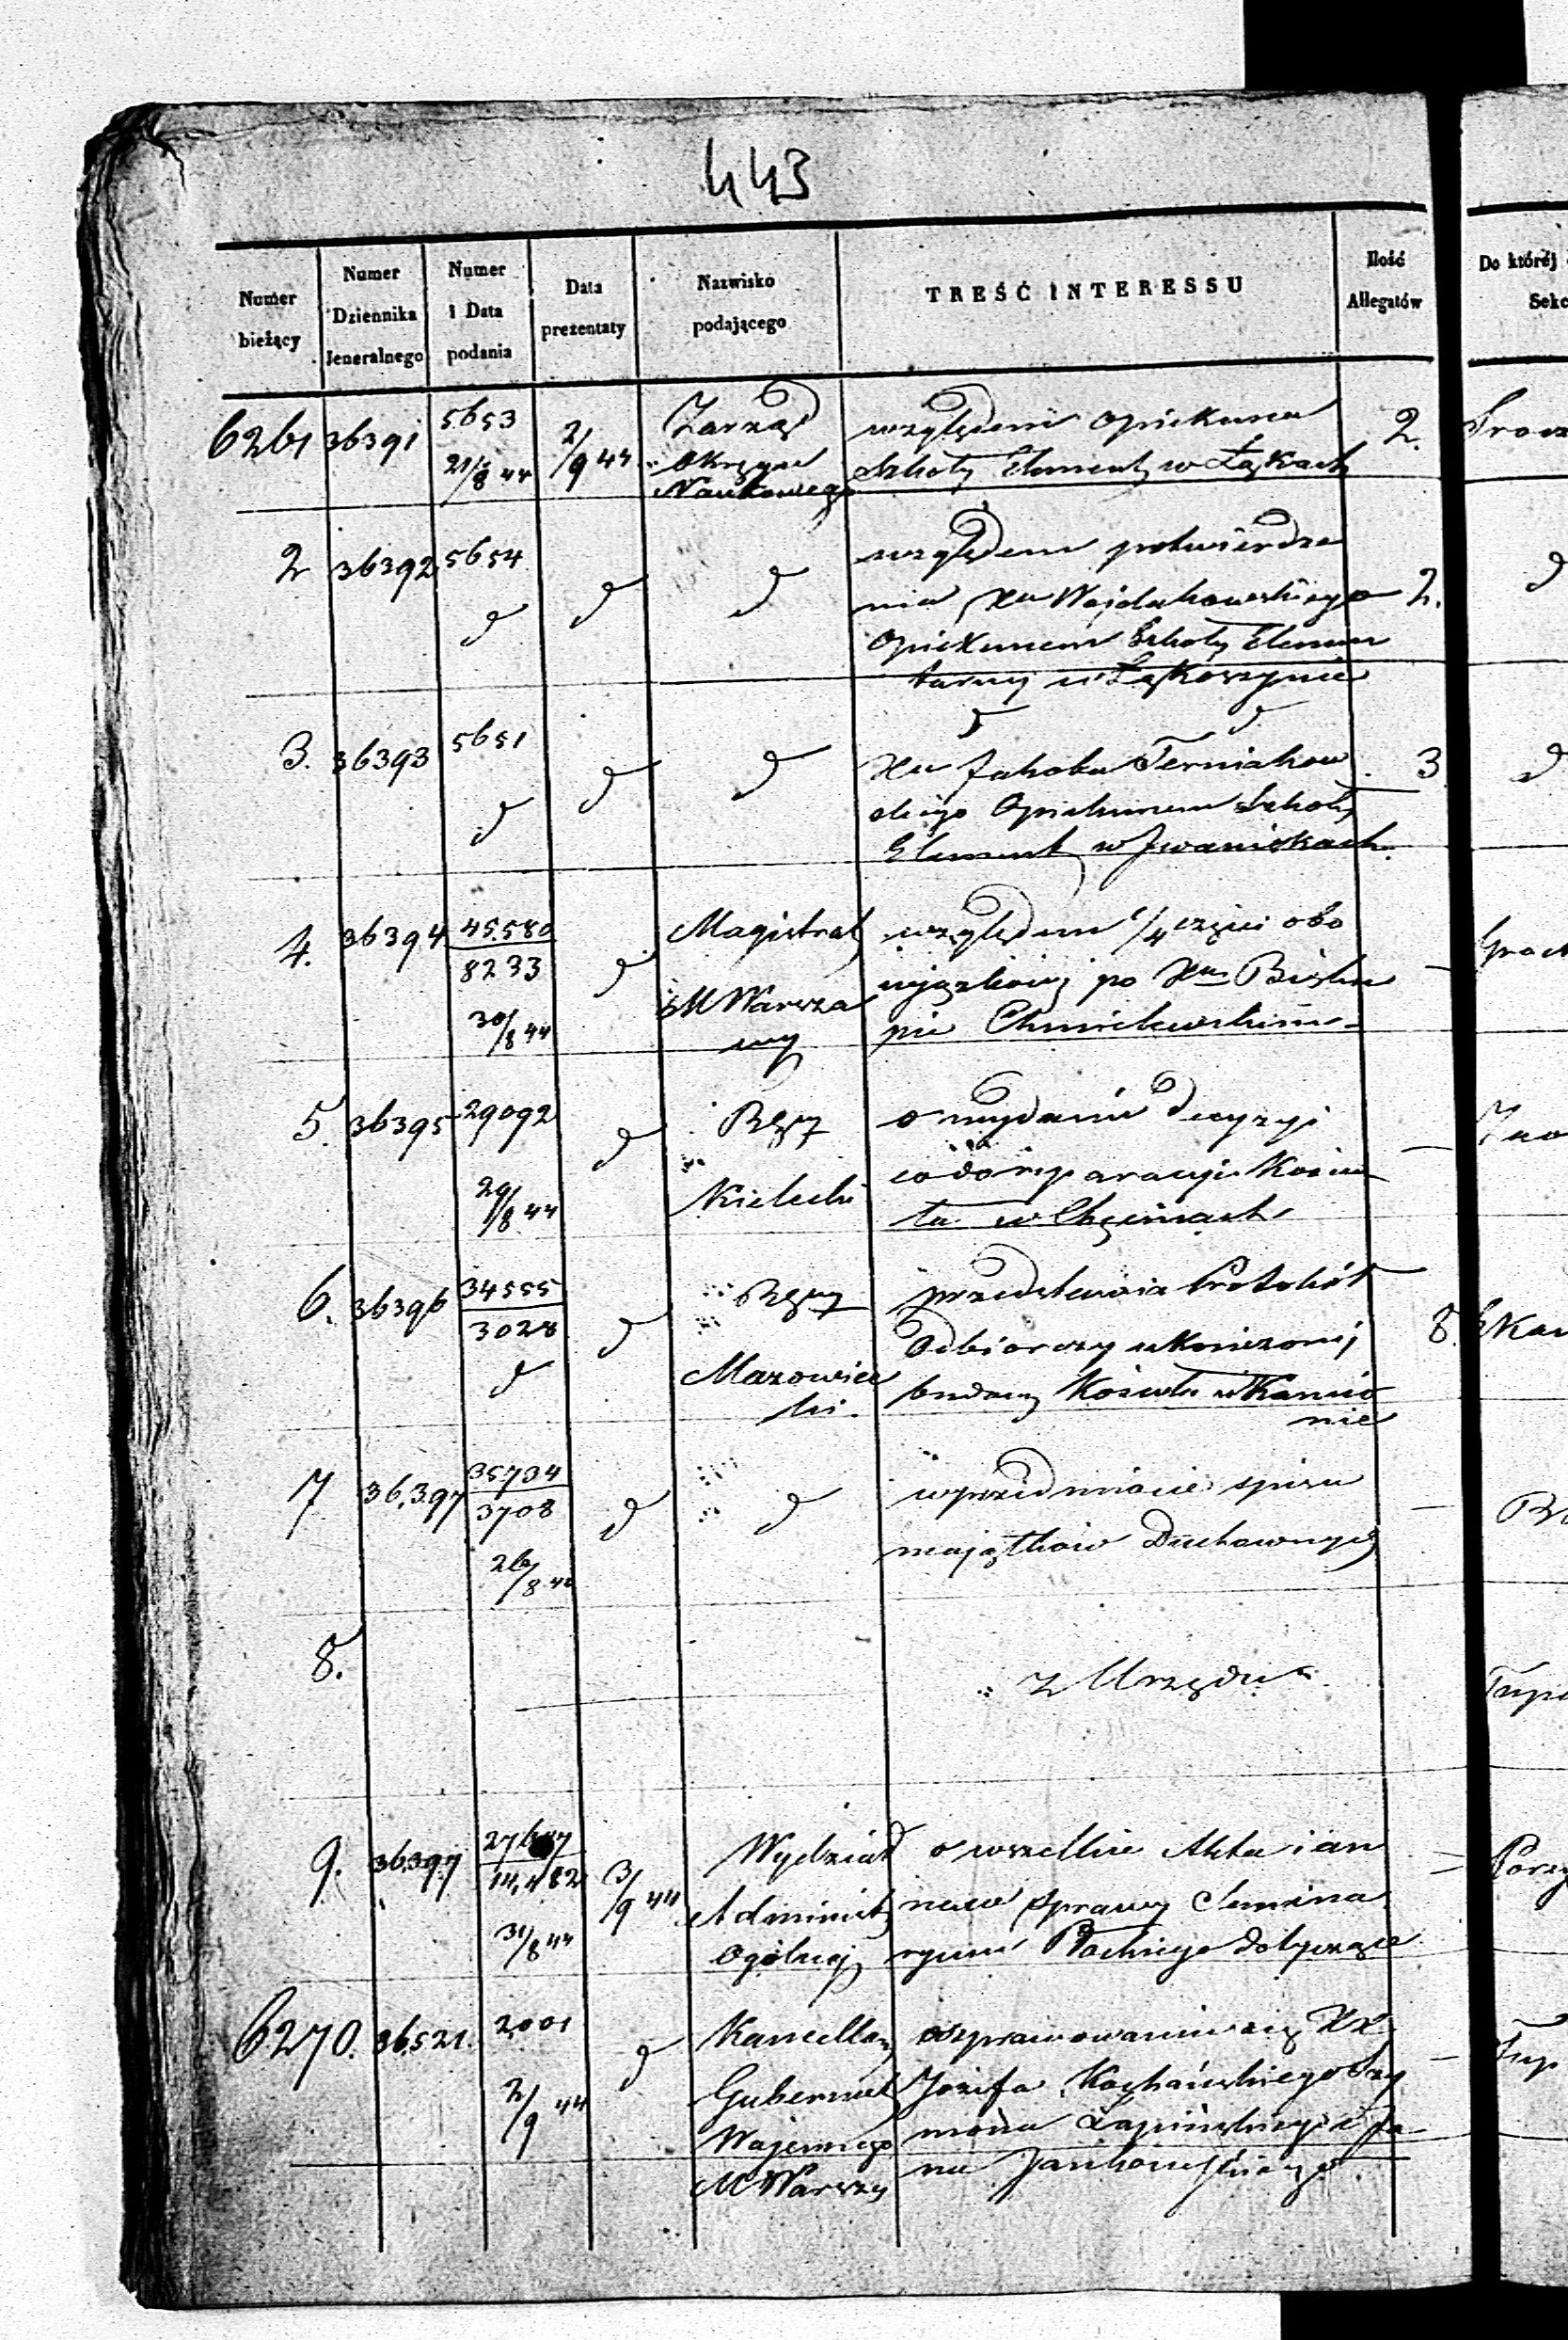 443
Numer bieżący | Numer Dziennika Jeneralnego | Numer i Data podania | Data prezentaty | Nazwisko podającego | TREŚĆ INTERESSU | Ilość Allegatów | Do której Sekc
6261 | 36391 | 5653 21/8 44 | 2/9 44 | Zarząd Okręgu Naukowego | względem Opiekuna | 2.
Szkoły Element w Łąkach
2 | 36392 | 5654 d | d | d | względem potwierdze
nia Xa Wojdakowskiego | 2. | d
Opiekunem Szkoły Elemen
tarnej w Łąkoszynie
3. | 36393 | 5651 d | d | d | d d
Xa Jakoba Terniakow | 3 | d
skiego Opiekunem Szkoły
Element w Iwaniskach.
4. | 36394 | 45.580 8233 30/8 44 | d | Magistrat M Warsza wy | względem 1/4 części obo
wiązkowej po Xu Bisku
pie Chmielewskim
5. | 36395 | 29092 29/8 44 | d | Rząd Kielecki | o wydanie decyzyi
co do reparacyi Kościo
ła w Chęcinach
6. | 36396 | 34555 3028 d | d | Rząd Mazowiec ki. | przedstawia Protokół
Odbiorczy ukończonej | 8. | Skar
budowy Kościoła w Kamio
nie
7 | 36,397 | 35734 3708 26/8 44 | d | d | w przedmiocie spisu
majątków Duchownych
8. | z Urzędu
9. | 36397 | 14,482 31/8 44 | 3/9 44 | Wydział Administ Ogólnej | o wszelkie Akta i an
nexa sprawy Semina
ryum Płockiego dotyczące
6270. | 36521. | 2001 2/9 44 | d | Kancellary Gubernat Wojennego M Warszy | o sprawowaniu się XX
Józefa Kochańskiego Szy
mona Łapińskiego i Ja
na Jankowskiego